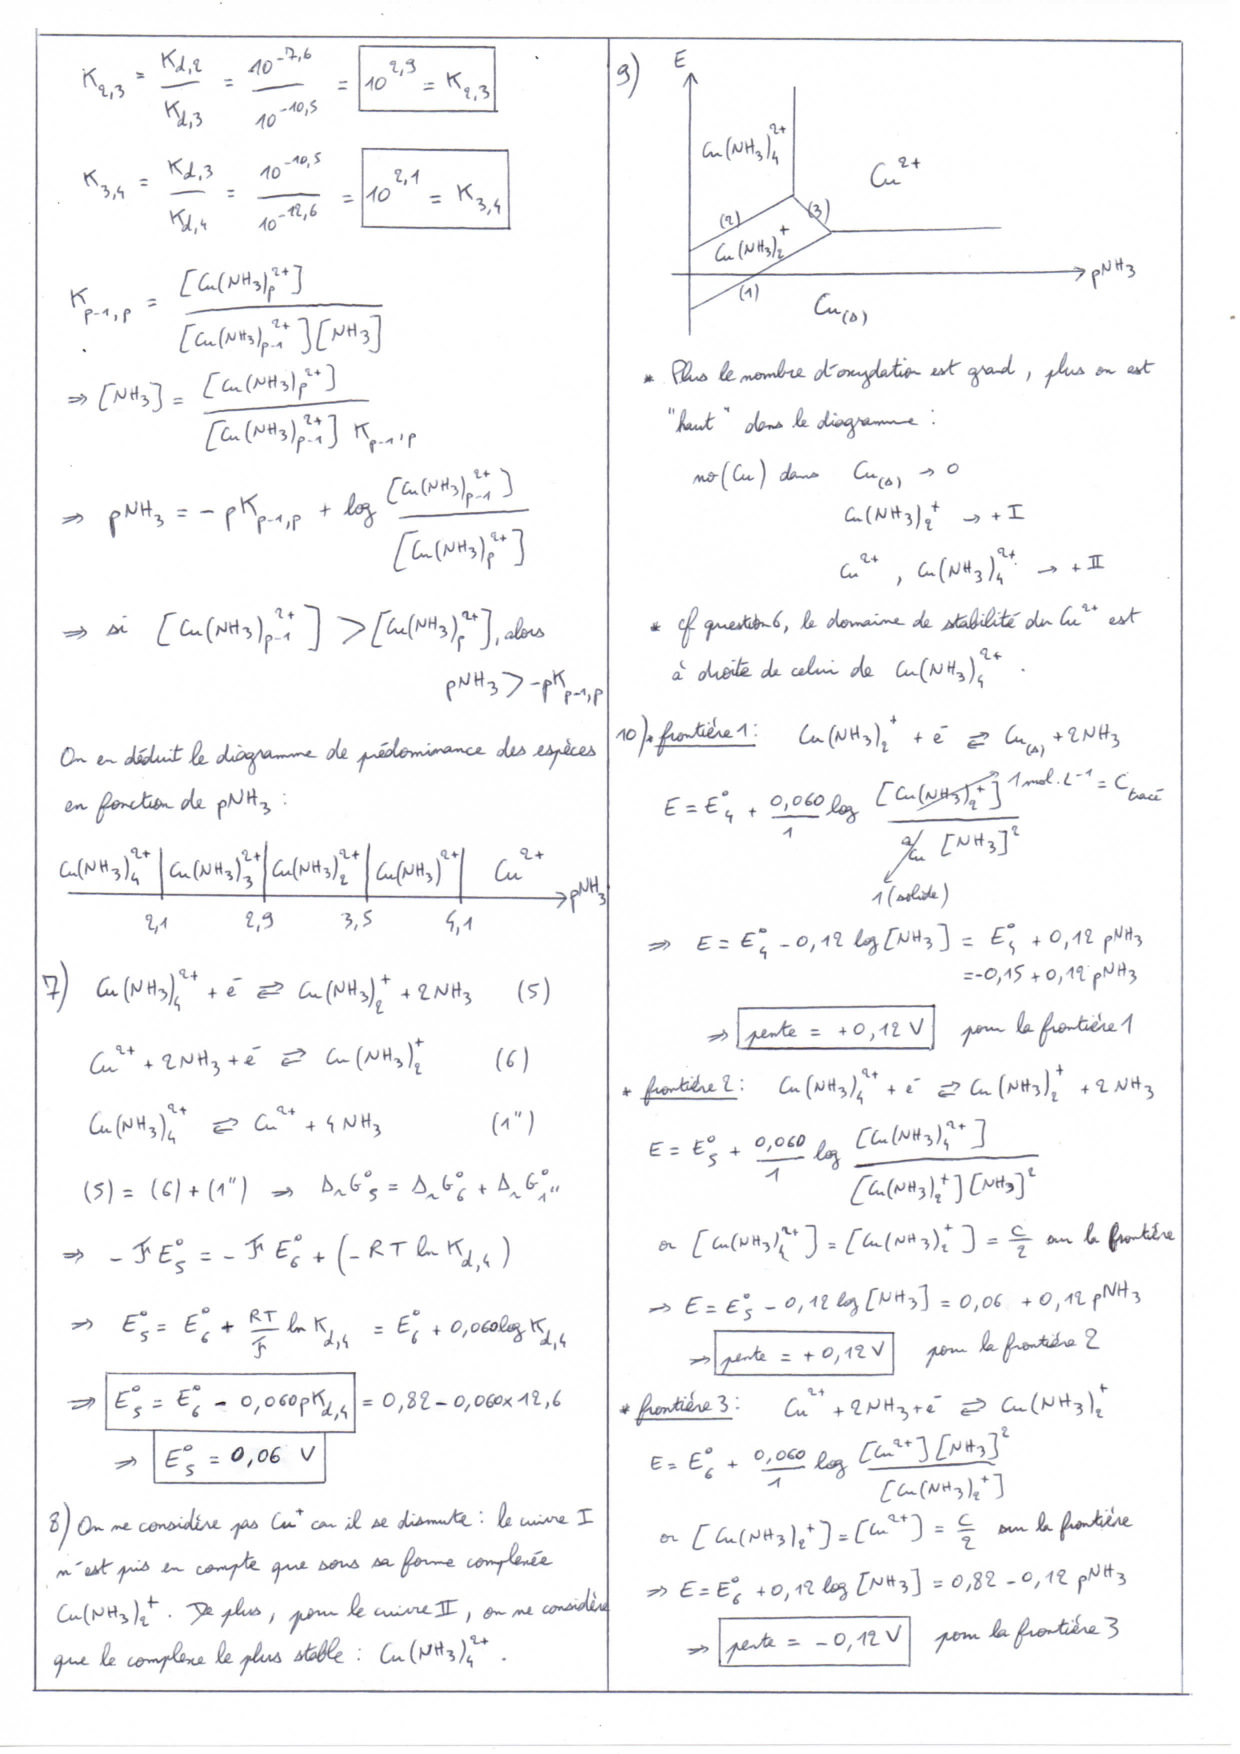 K_{2,3} = K_{d,2} / K_{d,3} = 10^{-7,6} / 10^{-10,5} = 10^{2,9} = K_{2,3}
K_{3,4} = K_{d,3} / K_{d,4} = 10^{-10,5} / 10^{-12,6} = 10^{2,1} = K_{3,4}
K_{p-1,p} = [Cu(NH3)_p^{2+}] / [Cu(NH3)_{p-1}^{2+}][NH3]
⇒ [NH3] = [Cu(NH3)_p^{2+}] / [Cu(NH3)_{p-1}^{2+}] K_{p-1,p}
⇒ pNH3 = - pK_{p-1,p} + log [Cu(NH3)_{p-1}^{2+}] / [Cu(NH3)_p^{2+}]
⇒ si [Cu(NH3)_{p-1}^{2+}] > [Cu(NH3)_p^{2+}], alors
pNH3 > -pK_{p-1,p}
On en déduit le diagramme de prédominance des espèces
en fonction de pNH3 :
Cu(NH3)_4^{2+} | Cu(NH3)_3^{2+} | Cu(NH3)_2^{2+} | Cu(NH3)^{2+} | Cu^{2+} → pNH3
2,1 2,9 3,5 4,1
7) Cu(NH3)_4^{2+} + e^- ⇌ Cu(NH3)_2^+ + 2NH3 (5)
Cu^{2+} + 2NH3 + e^- ⇌ Cu(NH3)_2^+ (6)
Cu(NH3)_4^{2+} ⇌ Cu^{2+} + 4NH3 (1")
(5) = (6) + (1") ⇒ Δ_rG°_5 = Δ_rG°_6 + Δ_rG°_{1"}
⇒ - F E°_5 = - F E°_6 + (-RT ln K_{d,4})
⇒ E°_5 = E°_6 + RT/F ln K_{d,4} = E°_6 + 0,060 log K_{d,4}
⇒ E°_5 = E°_6 - 0,060 pK_{d,4} = 0,82 - 0,060 × 12,6
⇒ E°_5 = 0,06 V
8) On ne considère pas Cu^+ car il se dismute : le cuivre I
n'est pris en compte que sous sa forme complexée
Cu(NH3)_2^+. De plus, pour le cuivre II, on ne considère
que le complexe le plus stable : Cu(NH3)_4^{2+}.
9) E
Cu(NH3)_4^{2+} Cu^{2+}
(2) (3)
Cu(NH3)_2^+
pNH3
(1)
Cu_(s)
* Plus le nombre d'oxydation est grand, plus on est
"haut" dans le diagramme :
no(Cu) dans Cu_(s) → 0
Cu(NH3)_2^+ → + I
Cu^{2+}, Cu(NH3)_4^{2+} → + II
* cf question 6, le domaine de stabilité du Cu^{2+} est
à droite de celui de Cu(NH3)_4^{2+}.
10) * frontière 1 : Cu(NH3)_2^+ + e^- ⇌ Cu_(s) + 2NH3
E = E°_4 + 0,060/1 log [Cu(NH3)_2^+] / a_Cu [NH3]^2 1 mol.L^{-1} = C_tracé
1 (solide)
⇒ E = E°_4 - 0,12 log [NH3] = E°_4 + 0,12 pNH3
= -0,15 + 0,12 pNH3
⇒ pente = +0,12 V pour la frontière 1
* frontière 2 : Cu(NH3)_4^{2+} + e^- ⇌ Cu(NH3)_2^+ + 2NH3
E = E°_5 + 0,060/1 log [Cu(NH3)_4^{2+}] / [Cu(NH3)_2^+][NH3]^2
or [Cu(NH3)_4^{2+}] = [Cu(NH3)_2^+] = C/2 sur la frontière
⇒ E = E°_5 - 0,12 log [NH3] = 0,06 + 0,12 pNH3
⇒ pente = + 0,12 V pour la frontière 2
* frontière 3 : Cu^{2+} + 2NH3 + e^- ⇌ Cu(NH3)_2^+
E = E°_6 + 0,060/1 log [Cu^{2+}][NH3]^2 / [Cu(NH3)_2^+]
or [Cu(NH3)_2^+] = [Cu^{2+}] = C/2 sur la frontière
⇒ E = E°_6 + 0,12 log [NH3] = 0,82 - 0,12 pNH3
⇒ pente = - 0,12 V pour la frontière 3